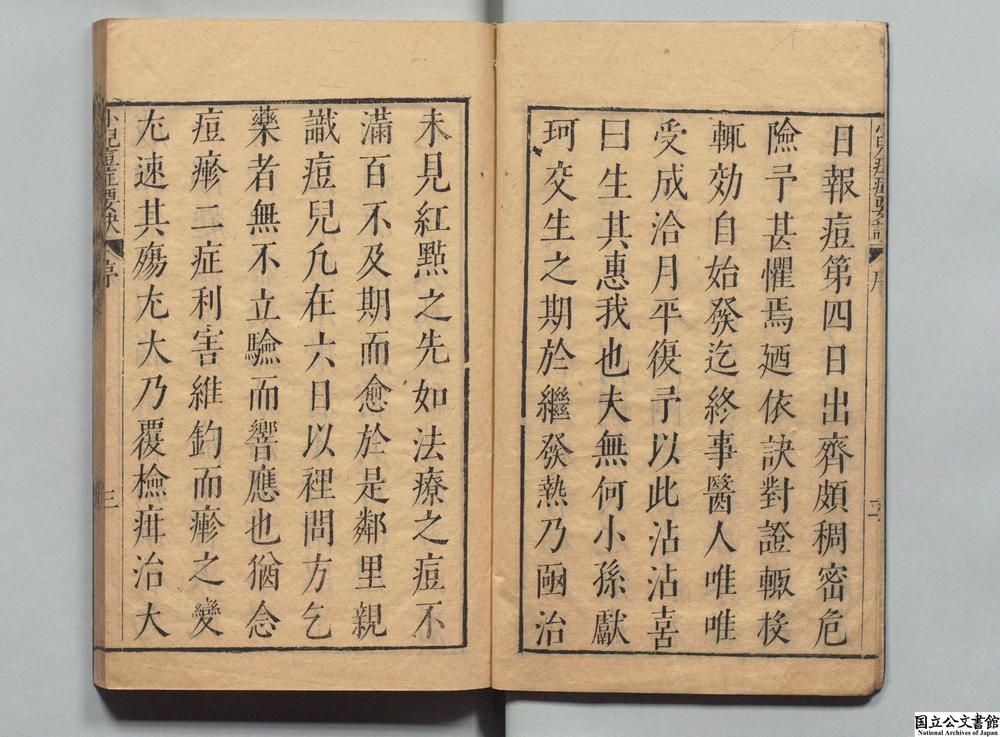 日報痘第四日出齊頗稠密危
險予甚懼焉廼依訣對證輙
輒効自始發迄終事醫人唯唯
受成洽月平復予以此沾沾喜
曰生其惠我也夫無何小孫獻
珂交生之期於繼發熱乃亟治
未見紅點之先如法療之痘不
滿百不及期而愈於是鄰里親
識痘兒凡在六日以裡問方乞
藥者無不立驗而響應也猶念
痘瘮二症利害維鈞而瘮之變
尤速其殤尤大乃覆檢疿治大
小兒痘症要訣
序
三
国立公文書館
National Archives of Japan